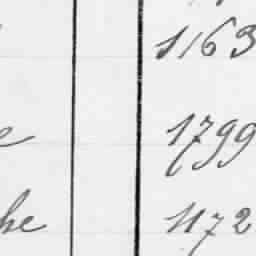 1163
e 1799
he 1172